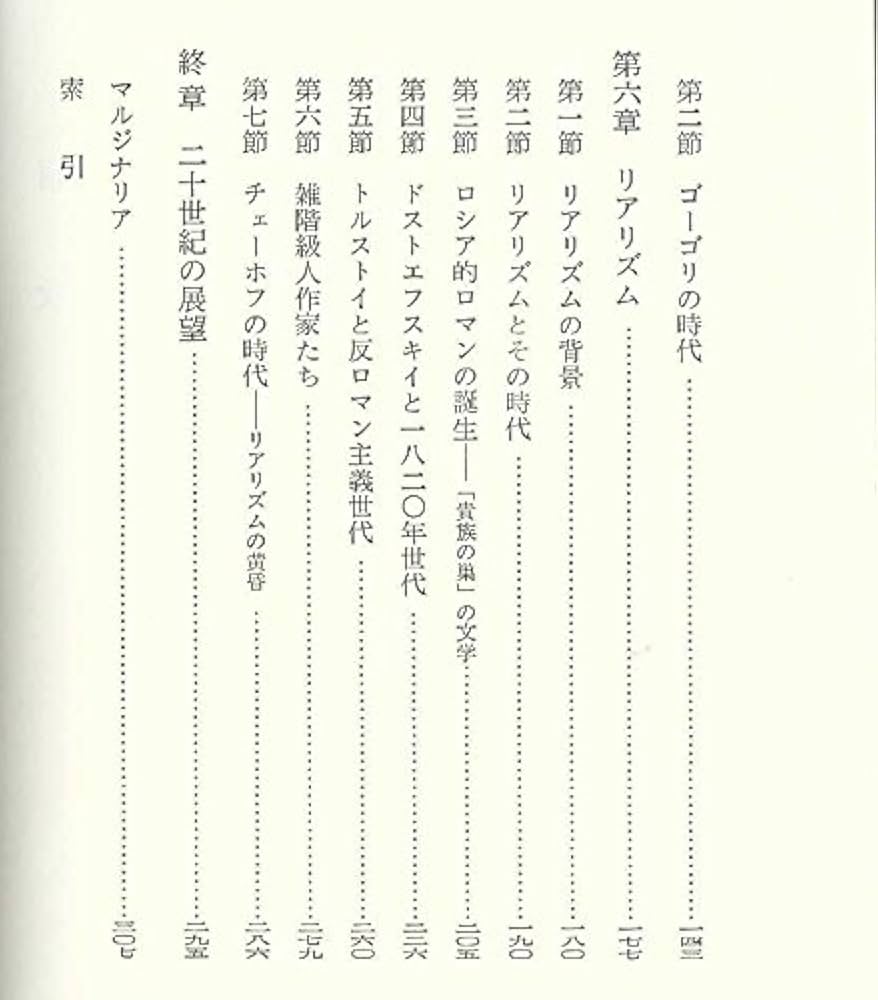 第二節 ゴーゴリの時代……一四三
第六章 リアリズム……一七七
第一節 リアリズムの背景……一八〇
第二節 リアリズムとその時代……一九〇
第三節 ロシア的ロマンの誕生——「貴族の巣」の文学……二〇五
第四節 ドストエフスキイと一八二〇年世代……二三六
第五節 トルストイと反ロマン主義世代……二六〇
第六節 雑階級人作家たち……二七九
第七節 チェーホフの時代——リアリズムの黄昏……二八六
終章 二十世紀の展望……二九五
マルジナリア……三〇七
索引